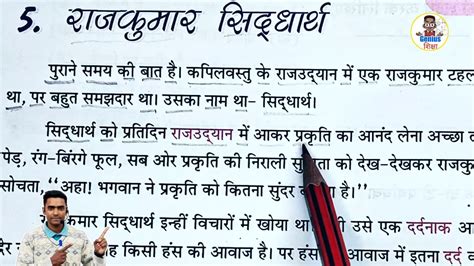 5. राजकुमार सिद्धार्थ
Genius
शिक्षा
पुराने समय की बात है। कपिलवस्तु के राजउद्यान में एक राजकुमार टहल
था, पर बहुत समझदार था। उसका नाम था- सिद्धार्थ।
सिद्धार्थ को प्रतिदिन राजउद्यान में आकर प्रकृति का आनंद लेना अच्छा
पेड़, रंग-बिरंगे फूल, सब ओर प्रकृति की निराली को देख-देखकर राजकु
सोचता, “अहा! भगवान ने प्रकृति को कितना सुंदर है।”
कुमार सिद्धार्थ इन्हीं विचारों में खोया था उसे एक दर्दनाक
यह किसी हंस की आवाज है। पर हंस आवाज में इतना दर्द